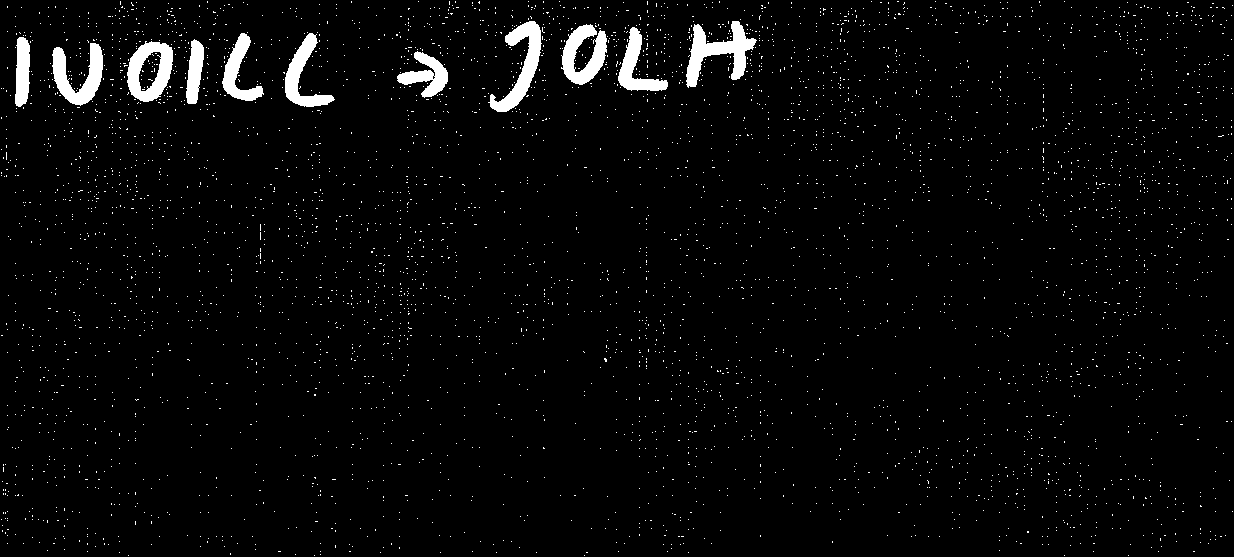 IUOILL → JOLH